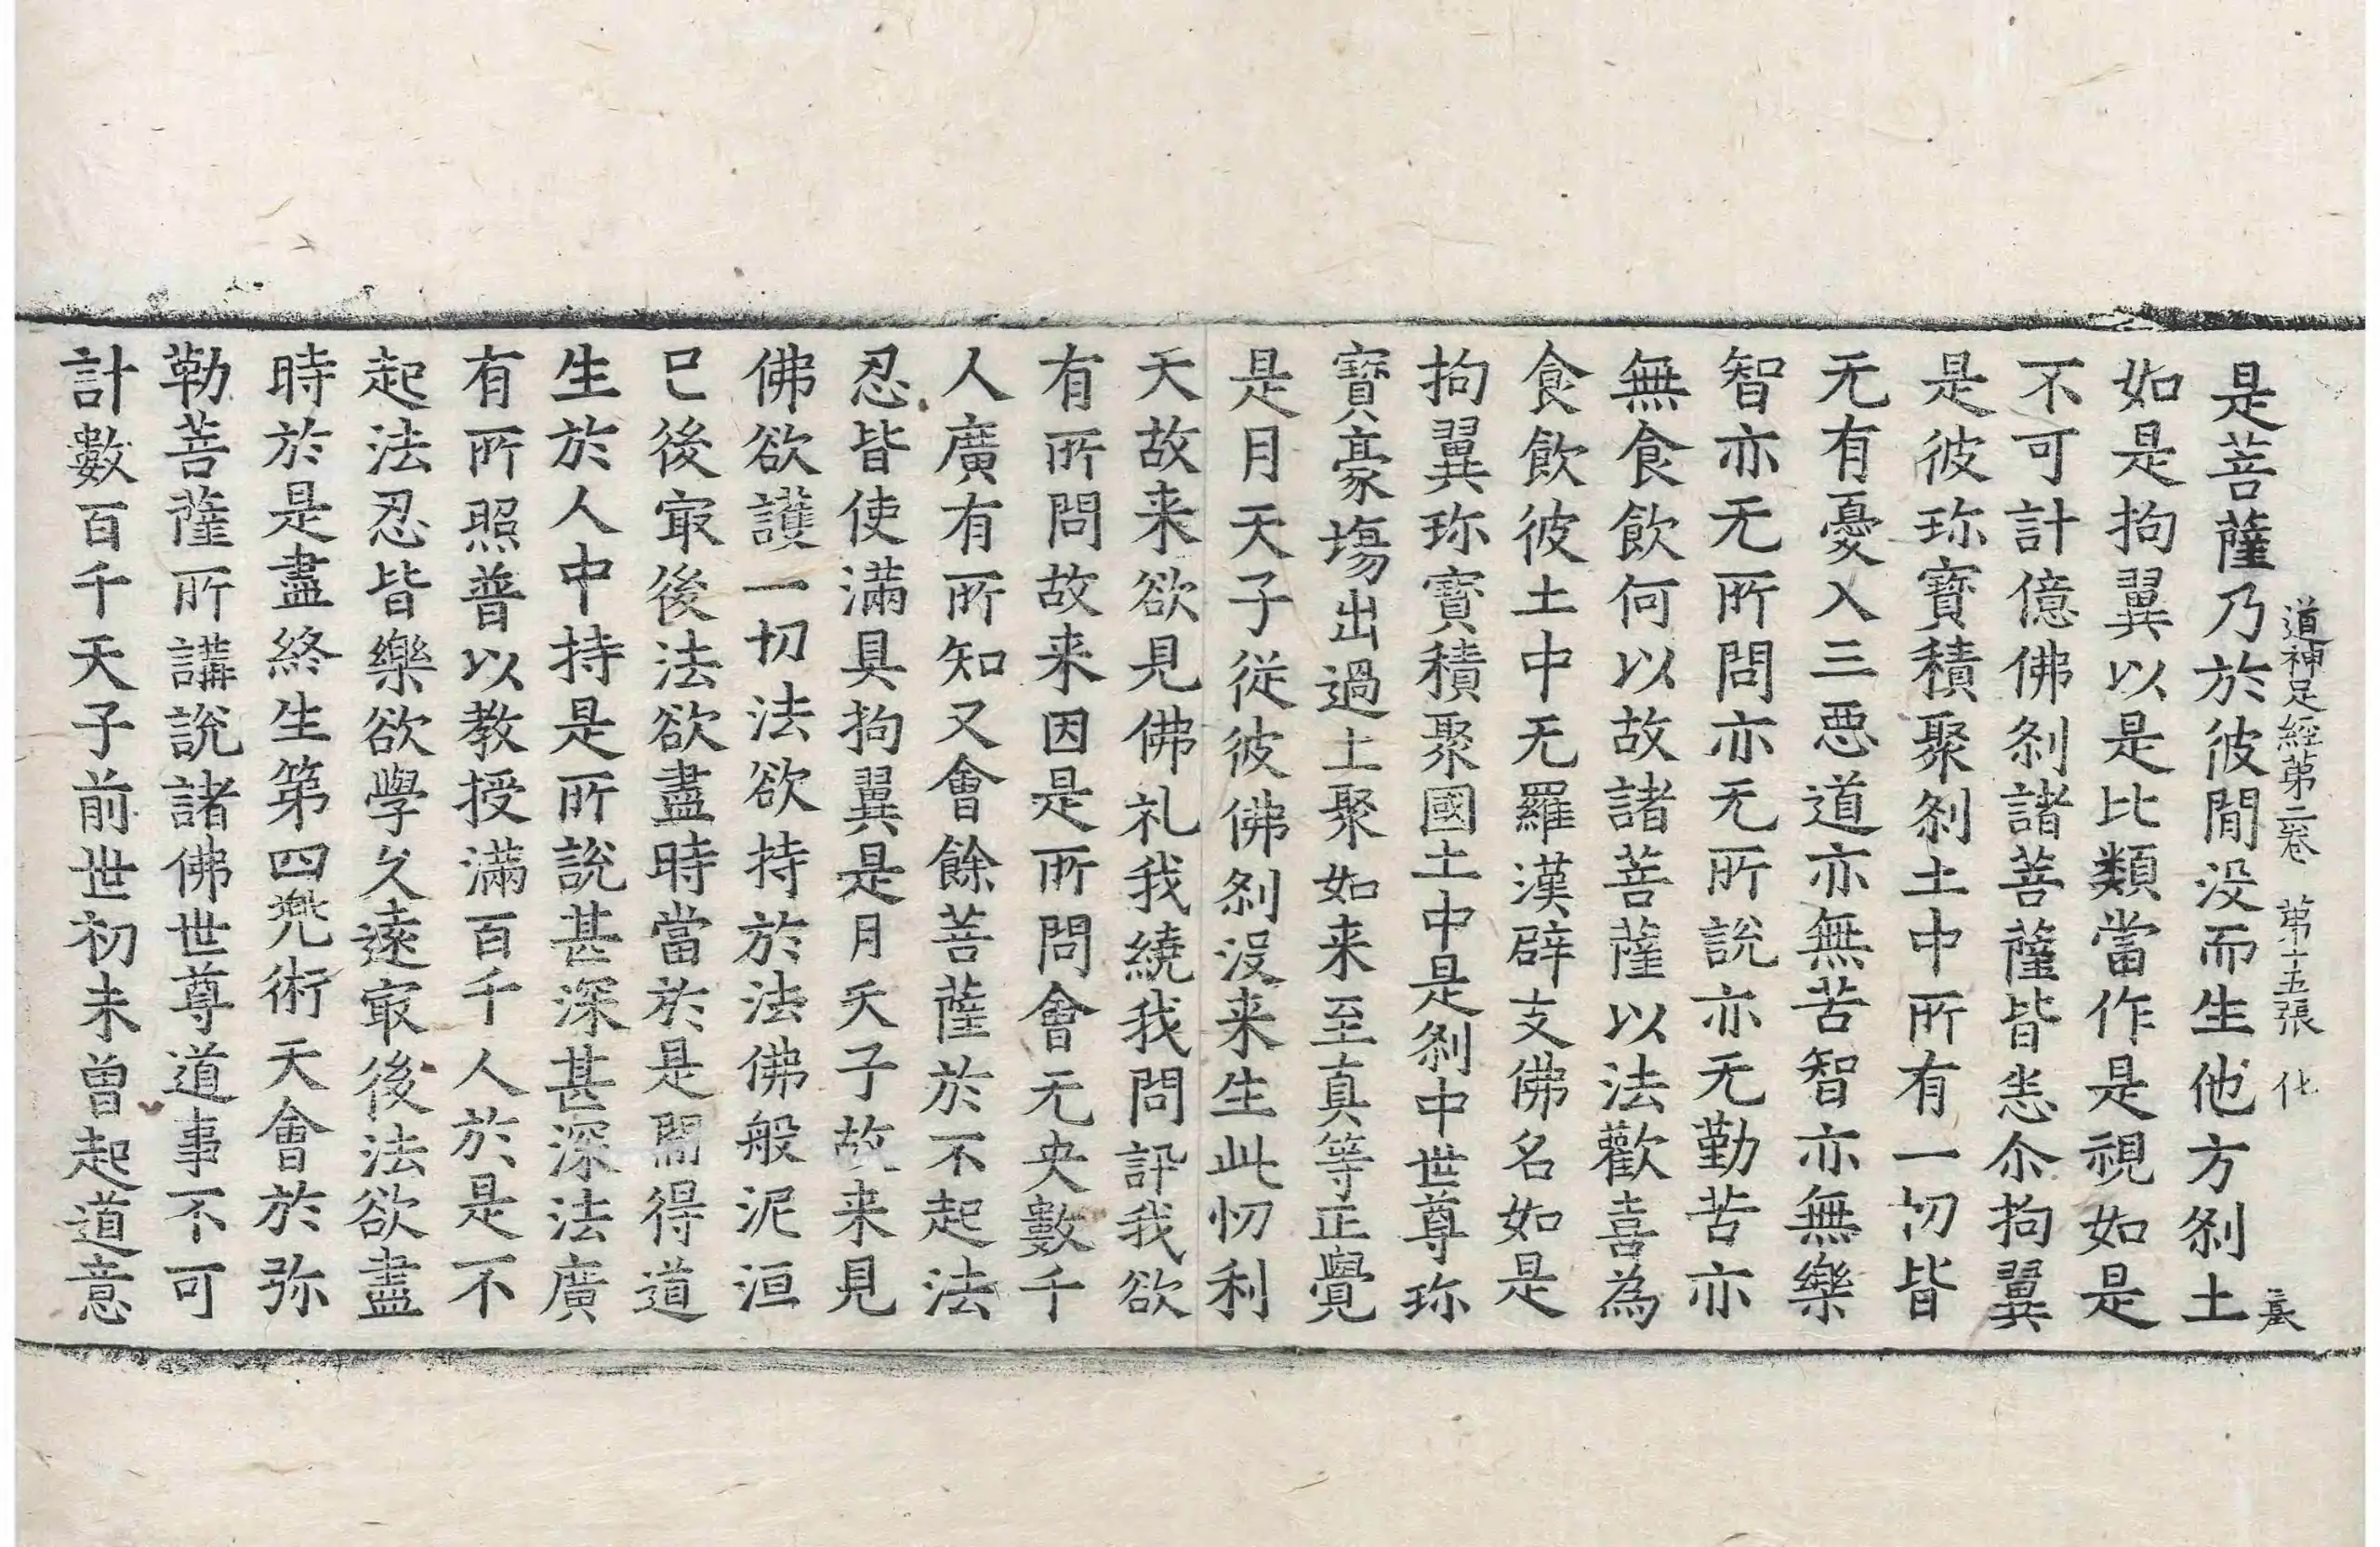 道神足經第二卷 第十五張 化
是菩薩乃於彼閒没而生他方刹土
如是拘翼以是比類當作是視如是
不可計億佛刹諸菩薩皆恙尒拘翼
是彼珎寳積聚刹土中所有一切皆
无有憂入三惡道亦無苦智亦無樂
智亦无所問亦无所說亦无勤苦亦
無食飲何以故諸菩薩以法歡喜為
食飲彼土中无羅漢辟支佛名如是
拘翼珎寳積聚國土中是刹中世尊珎
寳豪塲出過上聚如来至真等正覺
是月天子従彼佛刹没来生此忉利
天故来欲見佛礼我繞我問訊我欲
有所問故来因是所問會无央數千
人廣有所知又會餘菩薩於不起法
忍皆使滿具拘翼是月天子故来見
佛欲護一切法欲持於法佛般泥洹
已後㝡後法欲盡時當於是閻得道
生於人中持是所說甚深甚深法廣
有所照普以教授滿百千人於是不
起法忍皆樂欲學久遠㝡後法欲盡
時於是盡終生第四兠術天會於弥
勒菩薩所講說諸佛世尊道事不可
計數百千天子前世初未曾起道意